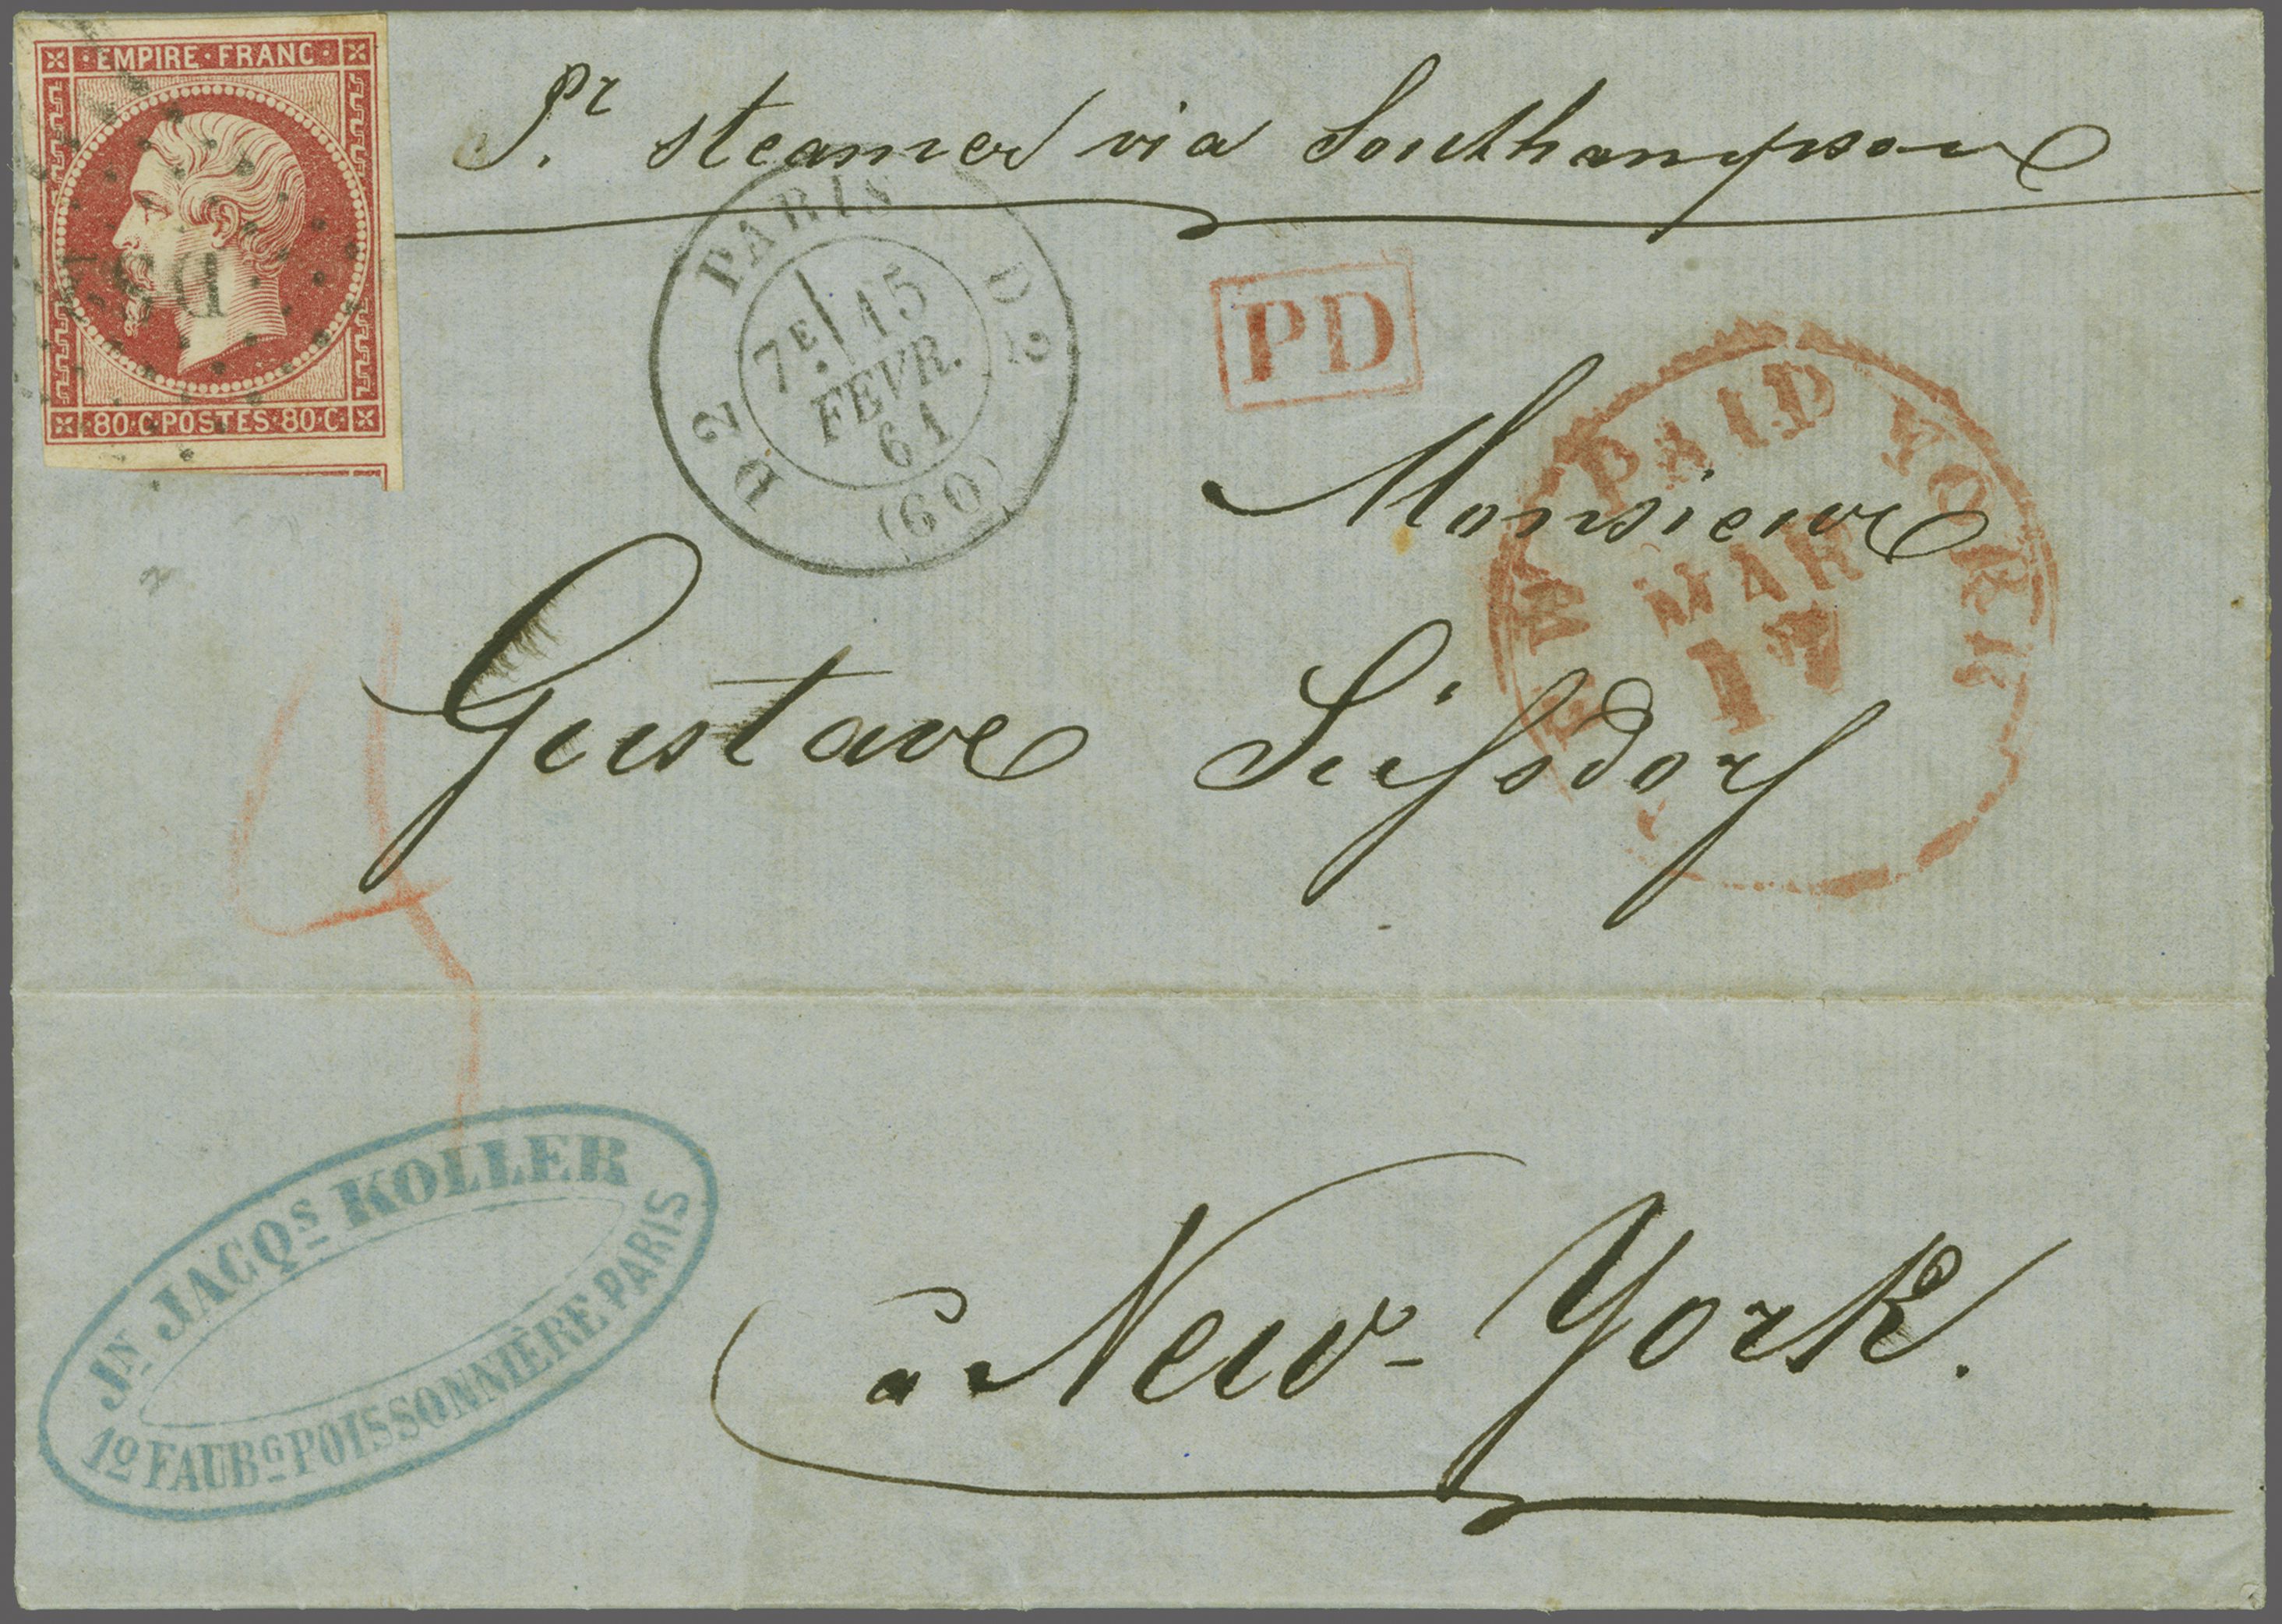 EMPIRE·FRANC·
80·C·POSTES·80·C·
DS2
Pr. steamer via Southampton
PARIS
D2 D2
7E 15
FEVR.
61
(60)
PD
NEW PAID YORK
MAR
17
Monsieur
Gustave Süssdorf
4
JN JACQS KOLLER
10 FAUBG POISSONNIÈRE PARIS
à New-York.